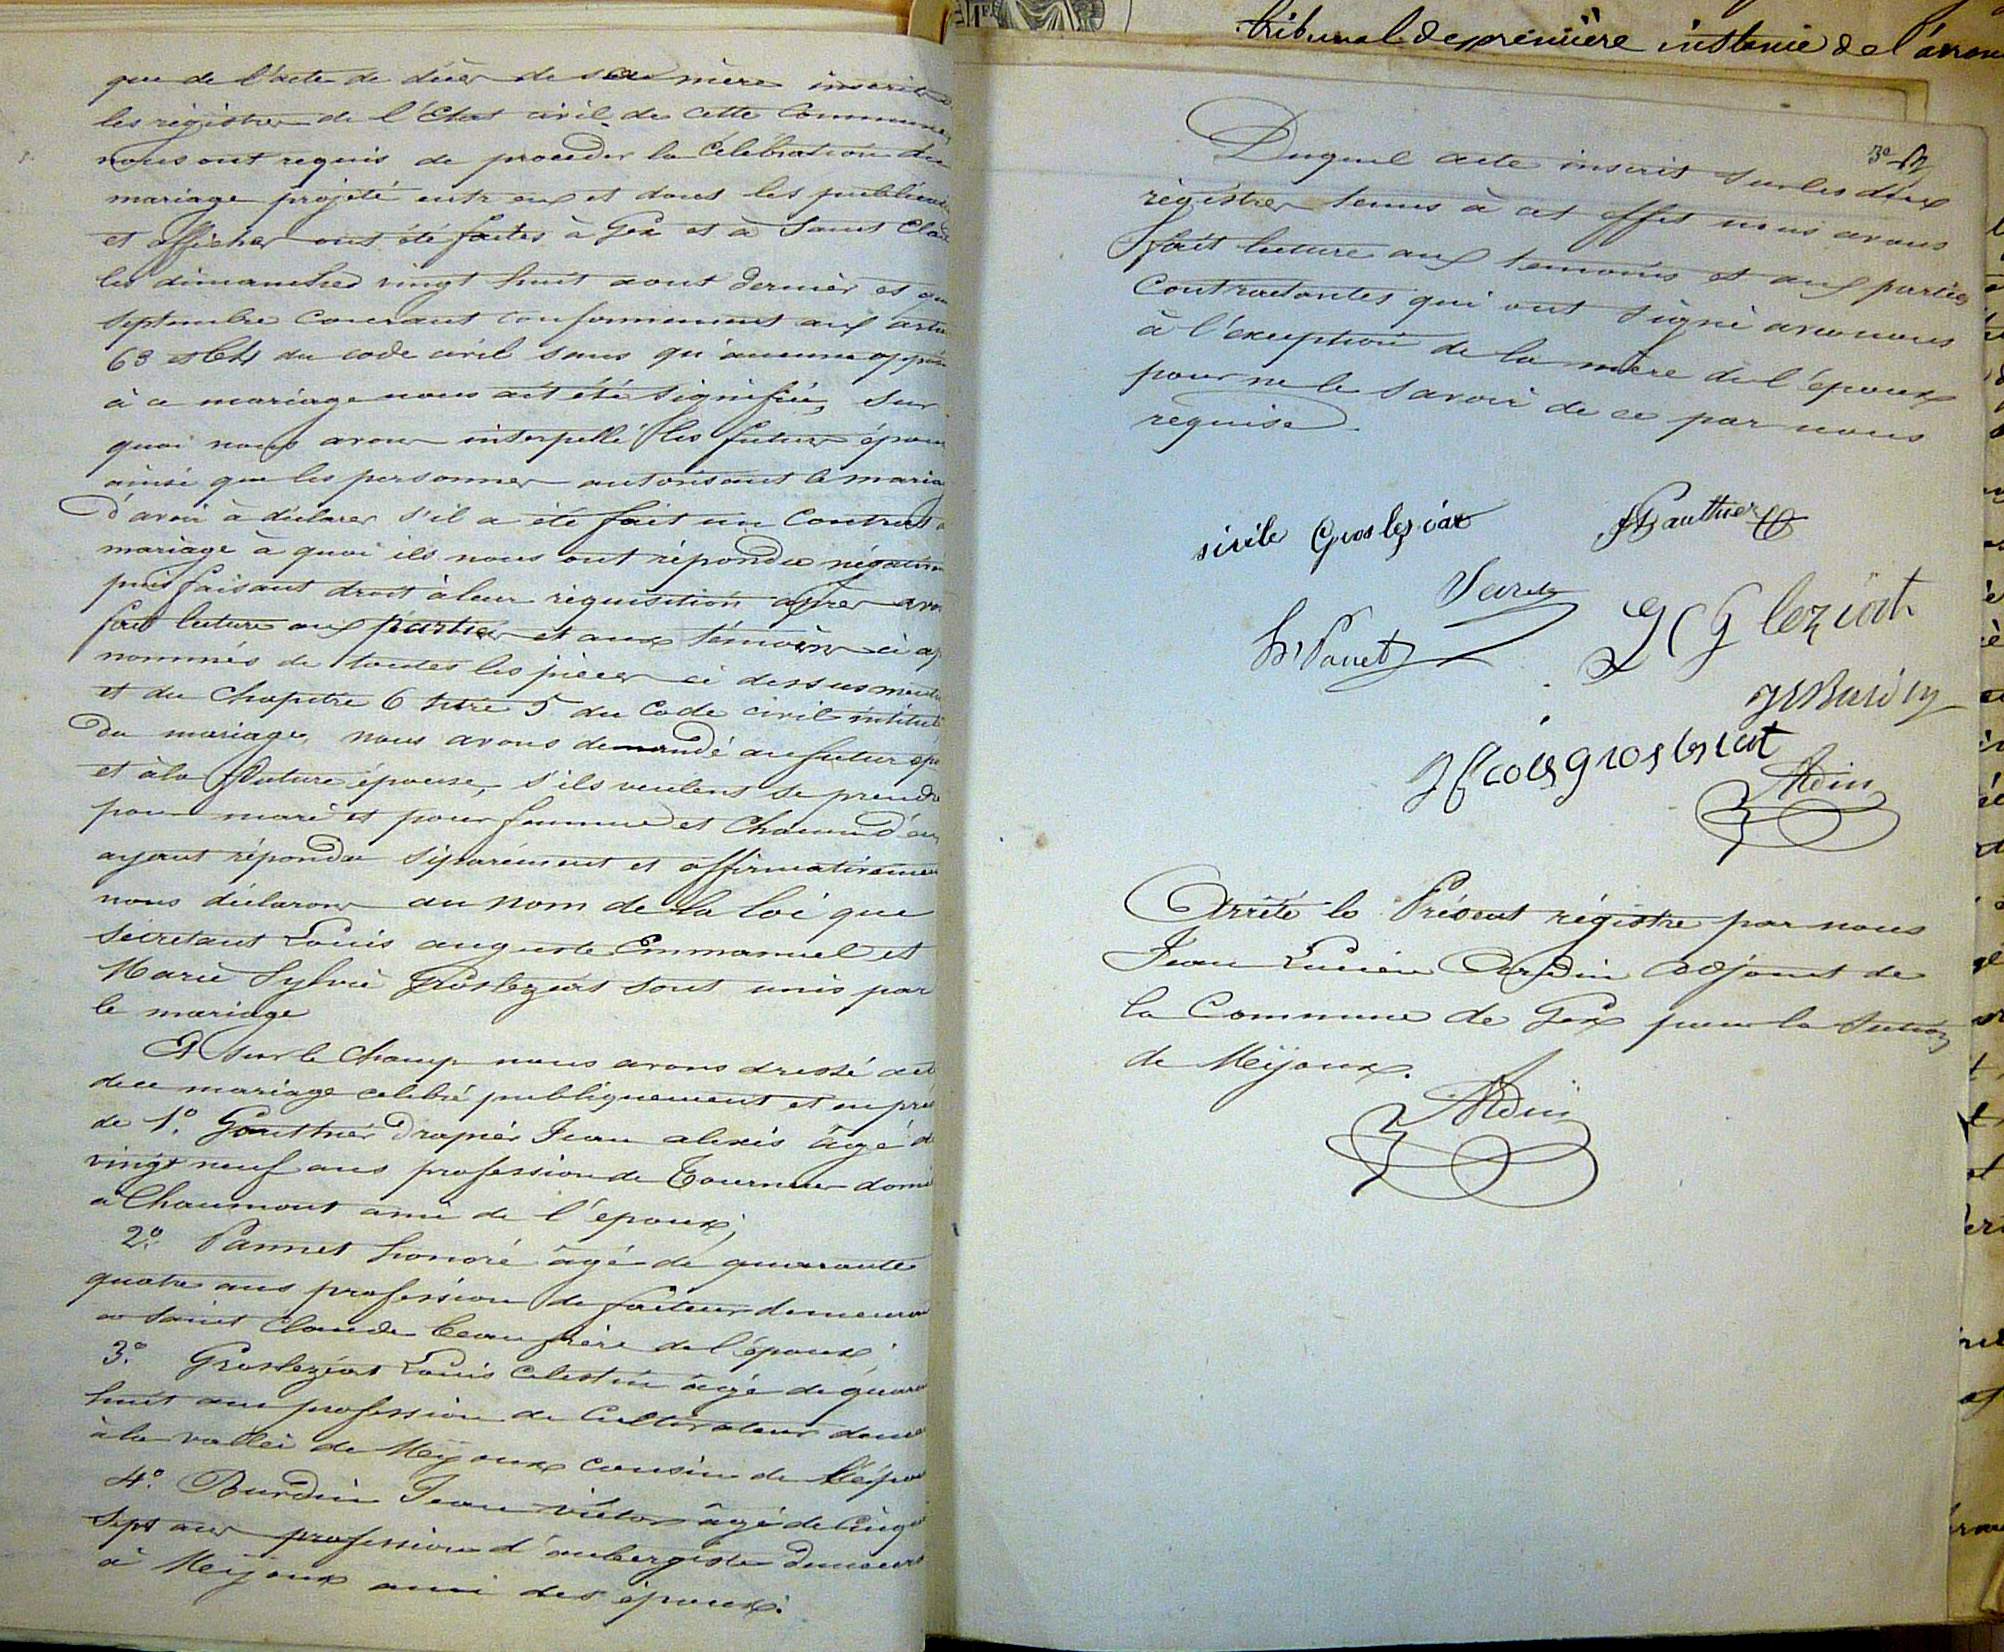 que de l'acte de décès de sa mère inscrit
les régistres de l'Etat civil de cette Commune,
nous ont requis de proceder la Célébration du
mariage projeté entr eux et dont les publicat
et affiches ont été faites à Gex et à Saint Clau
les dimanches vingt huit aout dernier et
Septembre Courant conformement aux artic
63 et 64 du code civil sans qu'aucune oppos
à ce mariage nous ait été signifiée, Sur
quoi nous avons interpellé les futurs époux
ainsi que les personnes autorisant le maria
d'avoir à déclarer s'il a été fait un Contrat d
mariage à quoi ils nous ont répondu négative
puis faisant droit à leur réquisition après avoi
fait lecture aux parties et aux témoins ci ap
nommés de toutes les pièces ci dessus ment
et du Chapitre 6 titre 5 du Code civil intitulé
Du mariage, nous avons demandé au futur épo
et à la future épouse, s'ils veulent se prendre
pour mari et pour femme et Chacun d'eux
ayant répondu séparément et affirmativemen
nous déclarons au nom de la loi que
Secretant Louis auguste Emmanuel et
Marie Sylvie Grosléziat sont unis par
le mariage
Et sur le Champ nous avons dressé act
de ce mariage celebré publiquement et en pres
de 1º. Gauthier Drapier Jean alexis âgé de
vingt neuf ans profession de Tourneur domi
à Chaumont ami de l'époux;
2º. Pannet honoré âgé de quarante
quatre ans profession de facteur demeuran
à Saint Claude beau frère de l'époux;
3º. Grosleziat Louis Celestin âgé de quaran
huit ans profession de Cultivateur deme
à la vallée de Mijoux cousin de l'épou
4º. Burdin Jean victor âgé de Cinqu
Sept ans profession d'aubergiste demeurt
à Mijoux ami des époux.
tribunal de première instance de l'arron
Duquel acte inscrit sur les deux
régistres tenus à cet effet nous avons
fait lecture aux temoins et aux parties
Contractantes qui ont signé avec nous
à l'exception de la mère de l'époux
pour ne le savoir de ce par nous
requise.
Gros leziat Gauthier
h. Panet
L C G leziat
JV Burdin
gros leziat
Ardin
Arrêté le Présent régistre par nous
Jean Lucien Ardin adjoint de
la Commune de Gex pour la Section
de Mijoux.
Ardin